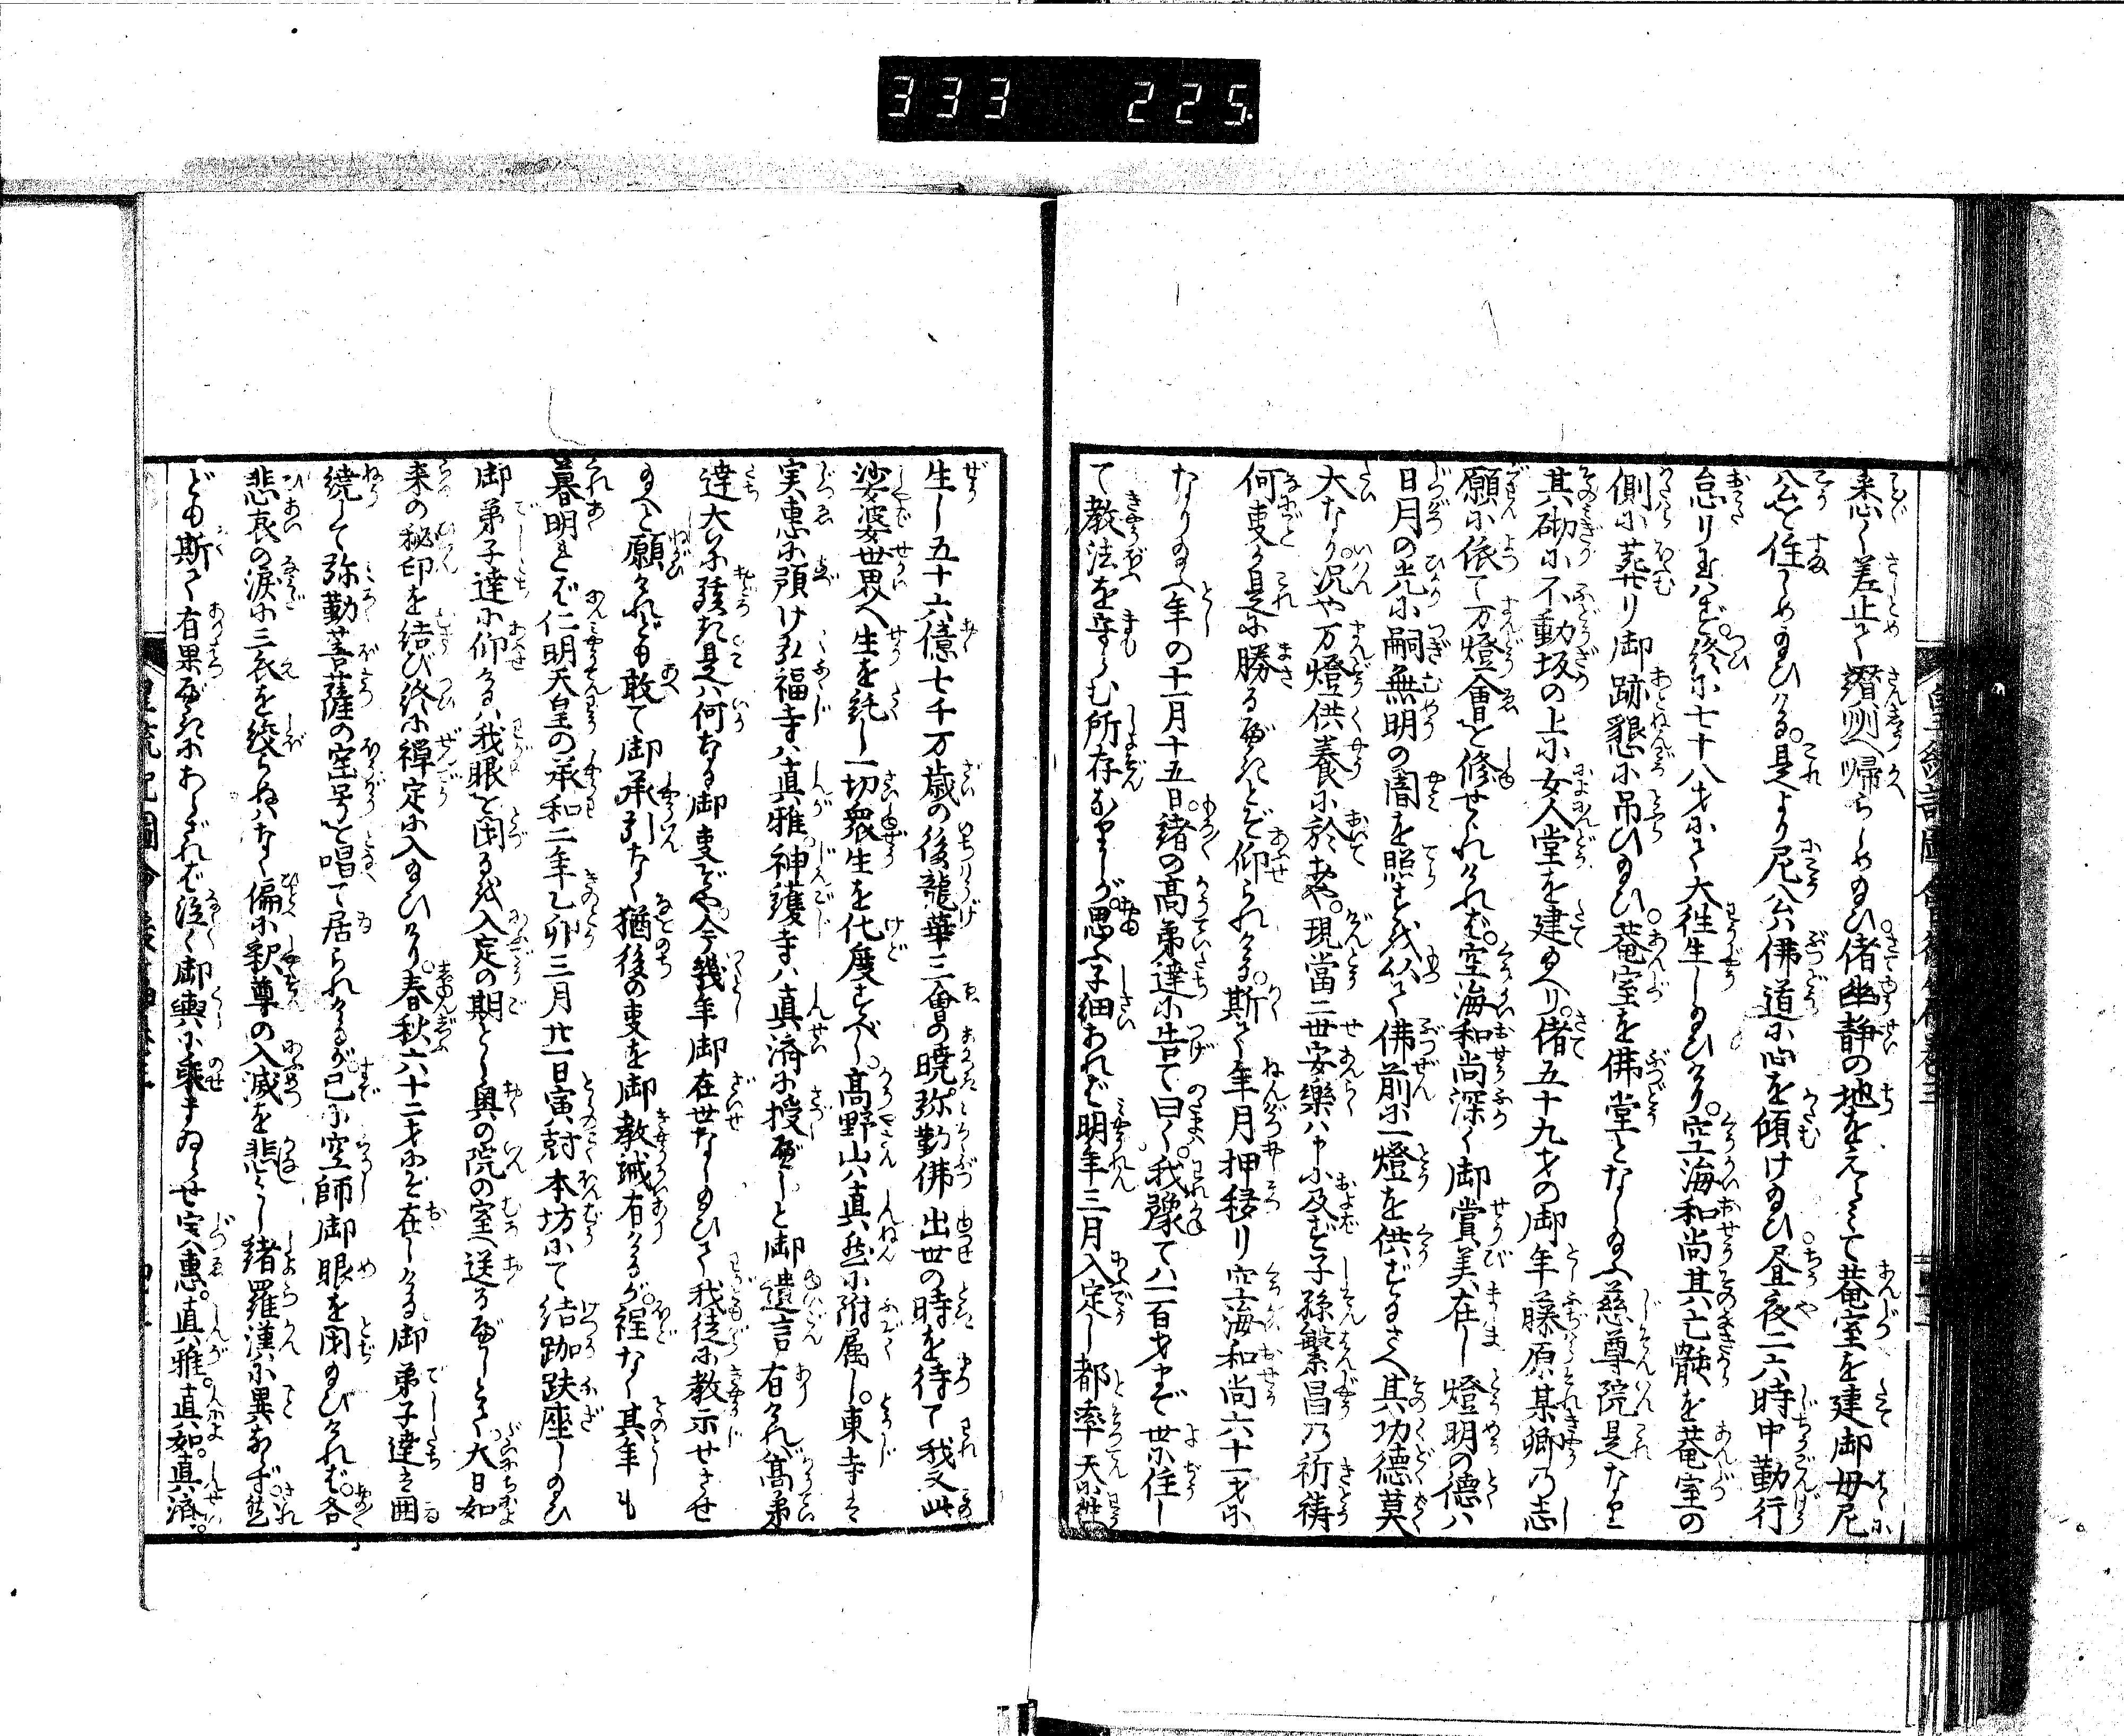 333 225
懇〱差止て讃州へ帰らしめ給ひ。偖幽静の地をえらみて菴室を建御母尼
公を住しめ給ひける。是より尼公ハ佛道に心を傾け給ひ。昼夜二六時中勤行
怠り玉はず。終に七十八才にて大徃生し給ひけり。空海和尚其亡骸を菴室の
側に葬りせり御跡懇に吊ひ給ひ。菴室を佛堂となし給ふ慈尊院是なり
其砌に不動坂の上に女人堂を建給へり。偖五十九才の御年藤原某卿乃志
願に依て万燈會を修せられければ。空海和尚深く御賞美在し燈明の德ハ
日月の光に嗣無明の闇を照すを以て佛前に一燈を供ずるさへ其功德莫
大なり。况や万燈供養に於おや。現當二世安樂ハ申に及ばず子孫繁昌乃祈祷
何事か是に勝るべきとぞ仰られける。斯て年月押移り空海和尚六十一才に
なり給ふ年の十一月十五日。緒の高弟達に告て曰く。我豫てハ一百才まで世に住し
て教法を守らむ所存なりしが。思ふ子細あれば明年三月入定し都率天に徃
生し五十六億七千万歳の後龍華三會の暁。弥勤佛出世の時を待て我又此
娑婆世界へ生を託し一切衆生を化度すべし。高野山ハ真然に附属し。東寺は
実惠に預け弘福寺ハ真雅。神護寺ハ真済に授べしと御遺言有ければ高弟
達大に驚き是ハ何なる御事ぞや。今幾年御在世なし給ひて我徒に教示せさせ
給へと願けれども敢て御承引なく猶後の事を御教誡有けるが。程なく其年も
暮明れば仁明天皇の承和二年乙卯三月廿一日寅尅本坊にて結跏趺座し給ひ
御弟子達に仰ける ハ我眼を閉るを入定の期とし奥の院の室へ送るべしとて。大日如
来の秘印を結び終に禪定に入給ひけり。春秋六十二才にぞ在しける御弟子達は囲
繞して弥勤菩薩の宝号を唱て居られけるが。已に空師御眼を閉給ひければ。各
悲哀の涙に三衣を絞らぬハなく偏に釈尊の入滅を悲し緒羅漢に異ならず然れ
ども斯て有果べきにあらざれば泣く御輿に乗まゐらせ実惠。真雅。真如。真済。